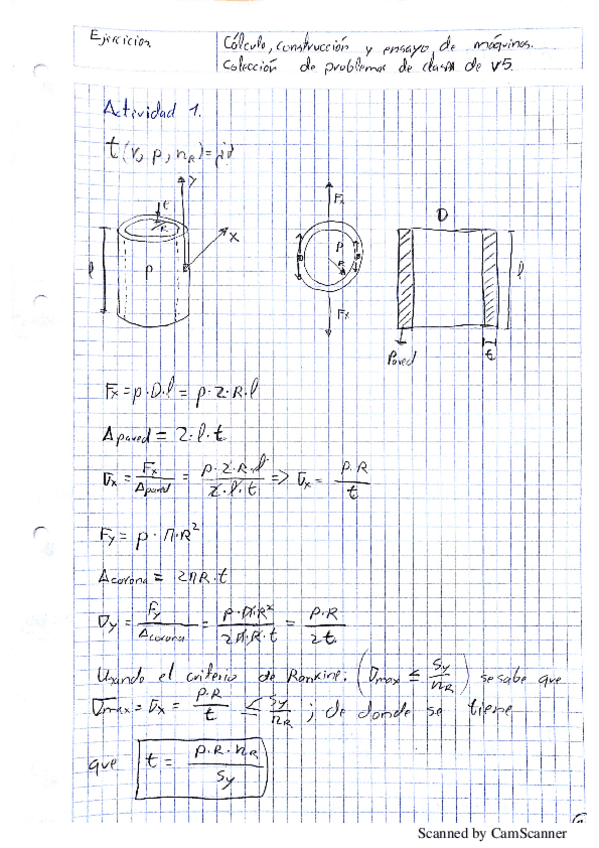 Ejercicios
Cálculo, construcción y ensayo de máquinas.
Colección de problemas de clase de v5.
Actividad 1.
t(r, p, n_R) = ¿?
y
t
R
x
l
P
F_x
P
R
F_x
D
l
Pared
t
F_x = p·D·l = p·2·R·l
A pared = 2·l·t
σ_x = F_x / A pared = p·2·R·l / 2·l·t => σ_x = p·R / t
F_y = p·π·R²
A corona = 2πR·t
σ_y = F_y / A corona = p·π·R² / 2π·R·t = p·R / 2t
Usando el criterio de Rankine: (σ_max ≤ Sy / n_R) se sabe que
σ_max = σ_x = p·R / t ≤ Sy / n_R ; de donde se tiene
que t = p·R·n_R / Sy
Scanned by CamScanner